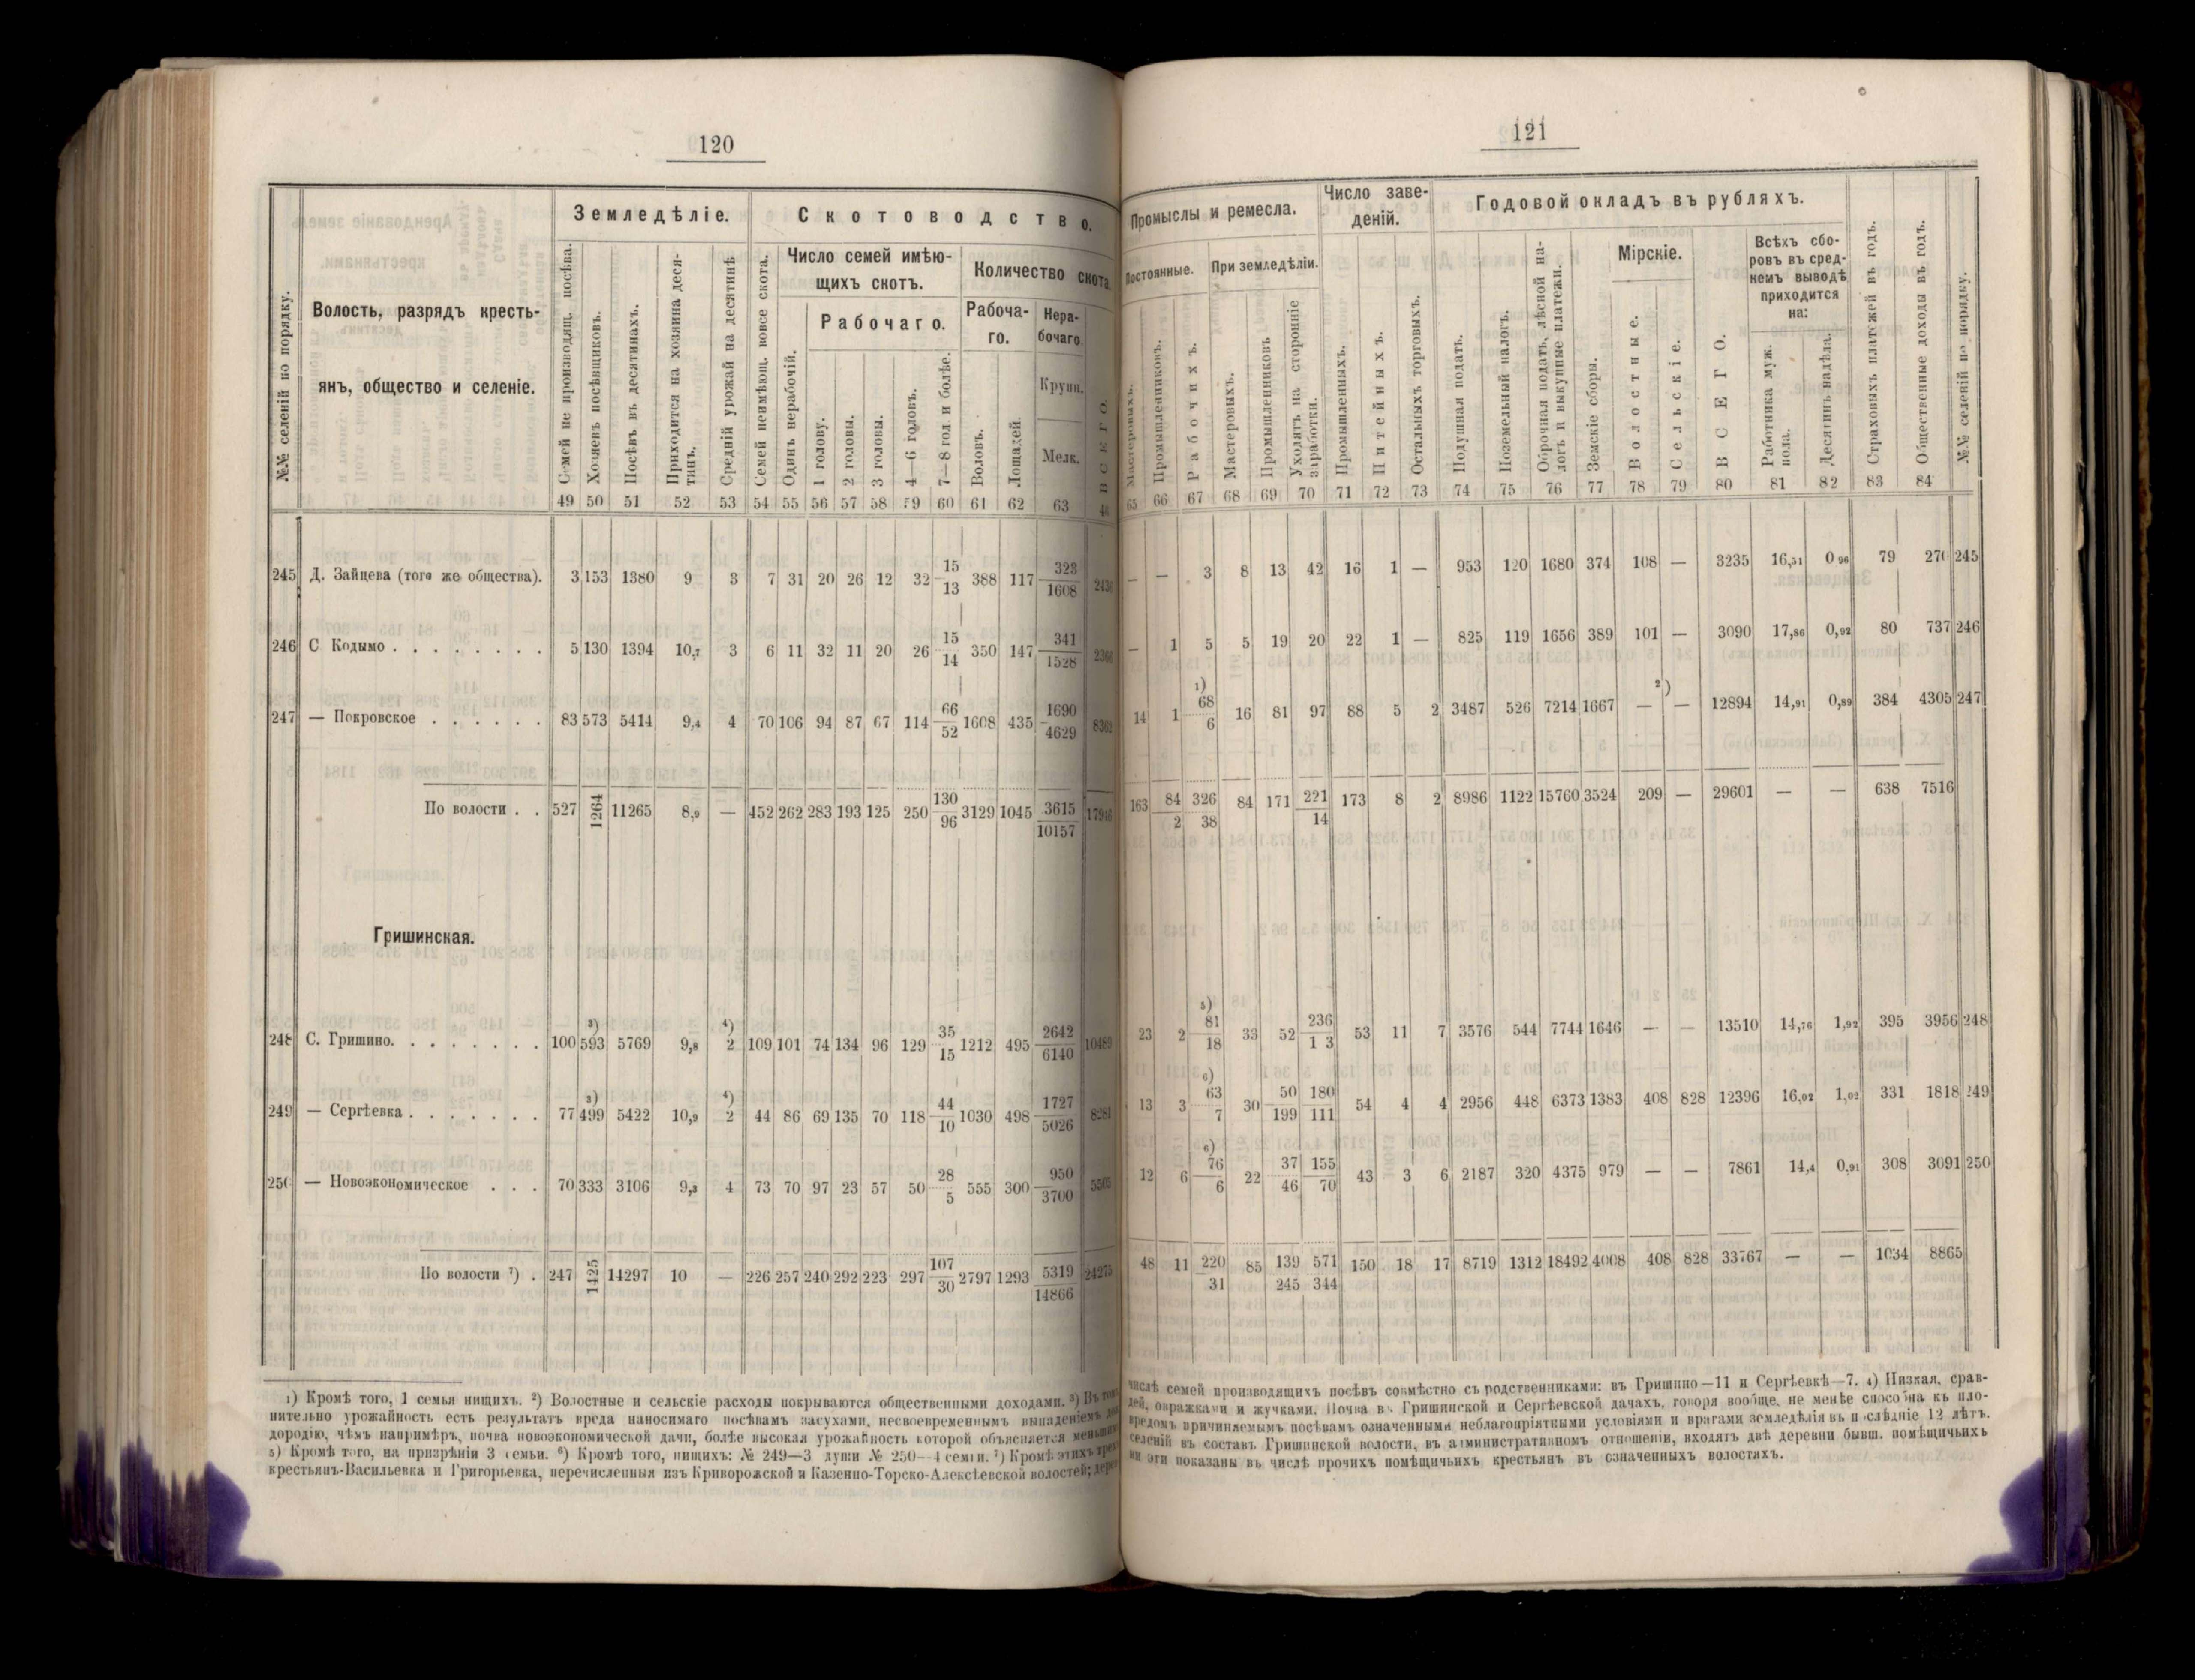 120
№№ селеній по порядку.
Волость, разрядъ кресть-
янъ, общество и селеніе.
Земледѣліе.
Семей не производящ. посѣва.
Хозяевъ посѣвщиковъ.
Посѣвъ въ десятинахъ.
Приходится на хозяина деся-
тинъ.
Средній урожай на десятинѣ
Скотоводство.
Семей неимѣющ. вовсе скота.
Число семей имѣю-
щихъ скотъ.
Одинъ нерабочій.
Рабочаго.
1 голову.
2 головы.
3 головы.
4—6 головъ.
7—8 гол. и болѣе.
Количество скота.
Рабоча-
го.
Воловъ.
Лошадей.
Нера-
бочаго
Крупн.
Мелк.
ВСЕГО.
49 50 51 52 53 54 55 56 57 58 59 60 61 62 63
245 Д. Зайцева (того же общества). 3 153 1380 9 3 7 31 20 26 12 32 15/13 388 117 323/1608
246 С Кодымо . . . . . . . . 5 130 1394 10,7 3 6 11 32 11 20 26 15/14 350 147 341/1528 2366
247 — Покровское . . . . . . 83 573 5414 9,4 4 70 106 94 87 67 114 66/52 1608 435 1690/4629 8362
По волости . . 527 1264 11265 8,9 — 452 262 283 193 125 250 130/96 3129 1045 3615/10157 17946
Гришинская.
248 С. Гришино. . . . . . . . 100 593 3) 5769 9,8 2 4) 109 101 74 134 96 129 35/15 1212 495 2642/6140 10489
249 — Сергѣевка . . . . . . . 77 499 3) 5422 10,9 2 4) 44 86 69 135 70 118 44/10 1030 498 1727/5026 8281
250 — Новоэкономическое . . . 70 333 3106 9,3 4 73 70 97 23 57 50 28/5 555 300 950/3700 5505
По волости 7) . 247 1425 14297 10 — 226 257 240 292 223 297 107/30 2797 1293 5319/14866 24275
1) Кромѣ того, 1 семья нищихъ. 2) Волостные и сельскіе расходы покрываются общественными доходами. 3) Въ томъ
нительно урожайность есть результатъ вреда наносимаго посѣвамъ засухами, несвоевременнымъ выпаденіемъ
дородію, чѣмъ напримѣръ, почва новоэкономической дачи, болѣе высокая урожайность которой объясняется меньшимъ
5) Кромѣ того, на призрѣніи 3 семьи. 6) Кромѣ того, нищихъ: № 249—3 души № 250—4 семьи. 7) Кромѣ этихъ трехъ
крестьянъ-Васильевка и Григорьевка, перечисленныя изъ Криворожской и Казенно-Торско-Алексѣевской волостей; дерев
121
Промыслы и ремесла.
Постоянные.
Мастеровыхъ.
Промышленниковъ.
Рабочихъ.
При земледѣліи.
Мастеровыхъ.
Промышленниковъ
Уходятъ на сторонніе
заработки.
Число заве-
деній.
Промышленныхъ.
Питейныхъ.
Остальныхъ торговыхъ.
Годовой окладъ въ рубляхъ.
Подушная подать.
Поземельный налогъ.
Оброчная подать, лѣсной на-
логъ и выкупные платежи.
Земскіе сборы.
Мірскіе.
Волостные.
Сельскіе.
ВСЕГО.
Всѣхъ сбо-
ровъ въ сред-
немъ выводѣ
приходится
на:
Работника муж.
пола.
Десятинъ надѣла.
Страховыхъ платежей въ годъ.
Общественные доходы въ годъ.
№№ селеній по порядку.
65 66 67 68 69 70 71 72 73 74 75 76 77 78 79 80 81 82 83 84
— — 3 8 13 42 16 1 — 953 120 1680 374 108 — 3235 16,51 0 96 79 270 245
— 1 5 5 19 20 22 1 — 825 119 1656 389 101 — 3090 17,86 0,92 80 737 246
14 1 1) 68/6 16 81 97 88 5 2 3487 526 7214 1667 — 2) — 12894 14,91 0,89 384 4305 247
163 84/2 326/38 84 171 221/14 173 8 2 8986 1122 15760 3524 209 — 29601 — — 638 7516
23 2 5) 81/18 33 52 236/1 3 53 11 7 3576 544 7744 1646 — — 13510 14,76 1,92 395 3956 248
13 3 6) 63/7 30 50/199 180/111 54 4 4 2956 448 6373 1383 408 828 12396 16,02 1,02 331 1818 249
12 6 6) 76/6 22 37/46 155/70 43 3 6 2187 320 4375 979 — — 7861 14,4 0,91 308 3091 250
48 11 220/31 85 139/245 571/344 150 18 17 8719 1312 18492 4008 408 828 33767 — — 1034 8865
числѣ семей производящихъ посѣвъ совмѣстно съ родственниками: въ Гришино—11 и Сергѣевкѣ—7. 4) Низкая, срав-
дей, овражками и жучками. Почва въ Гришинской и Сергѣевской дачахъ, говоря вообще, не менѣе способна къ пло-
вредомъ причиняемымъ посѣвамъ означенными неблагопріятными условіями и врагами земледѣлія въ послѣдніе 12 лѣтъ.
селеній въ составъ Гришинской волости, въ административномъ отношеніи, входятъ двѣ деревни бывш. помѣщичьихъ
ни эти показаны въ числѣ прочихъ помѣщичьихъ крестьянъ въ означенныхъ волостяхъ.